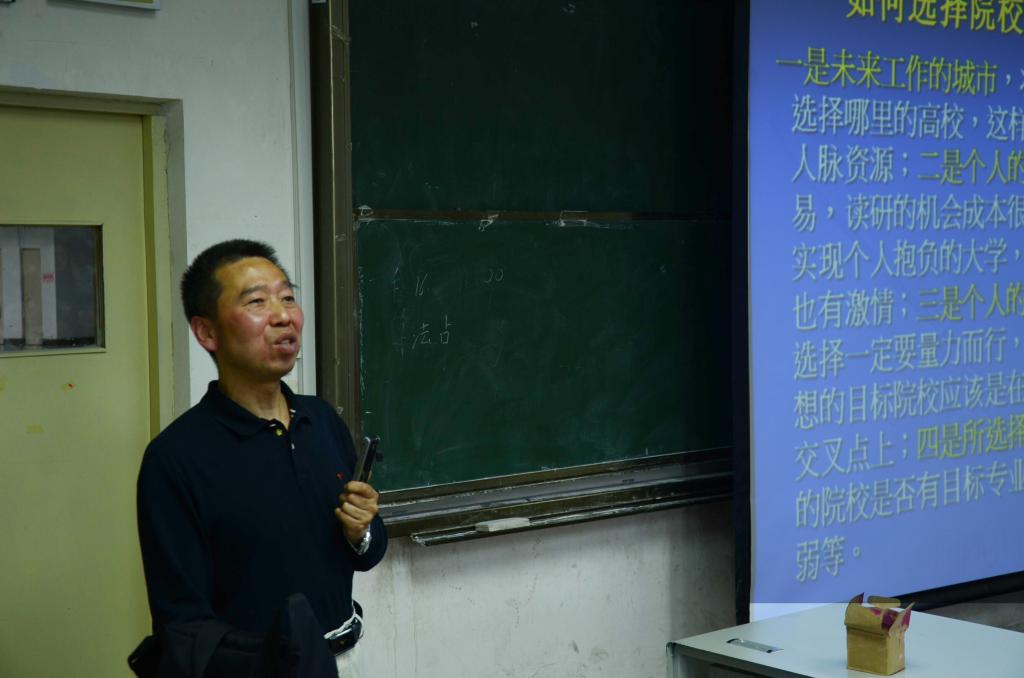 如何选择院校
一是未来工作的城市，
选择哪里的高校，这样
人脉资源；二是个人的
易，读研的机会成本很
实现个人抱负的大学，
也有激情；三是个人的
选择一定要量力而行，
想的目标院校应该是在
交叉点上；四是所选择
的院校是否有目标专业
弱等。
16 00
法占